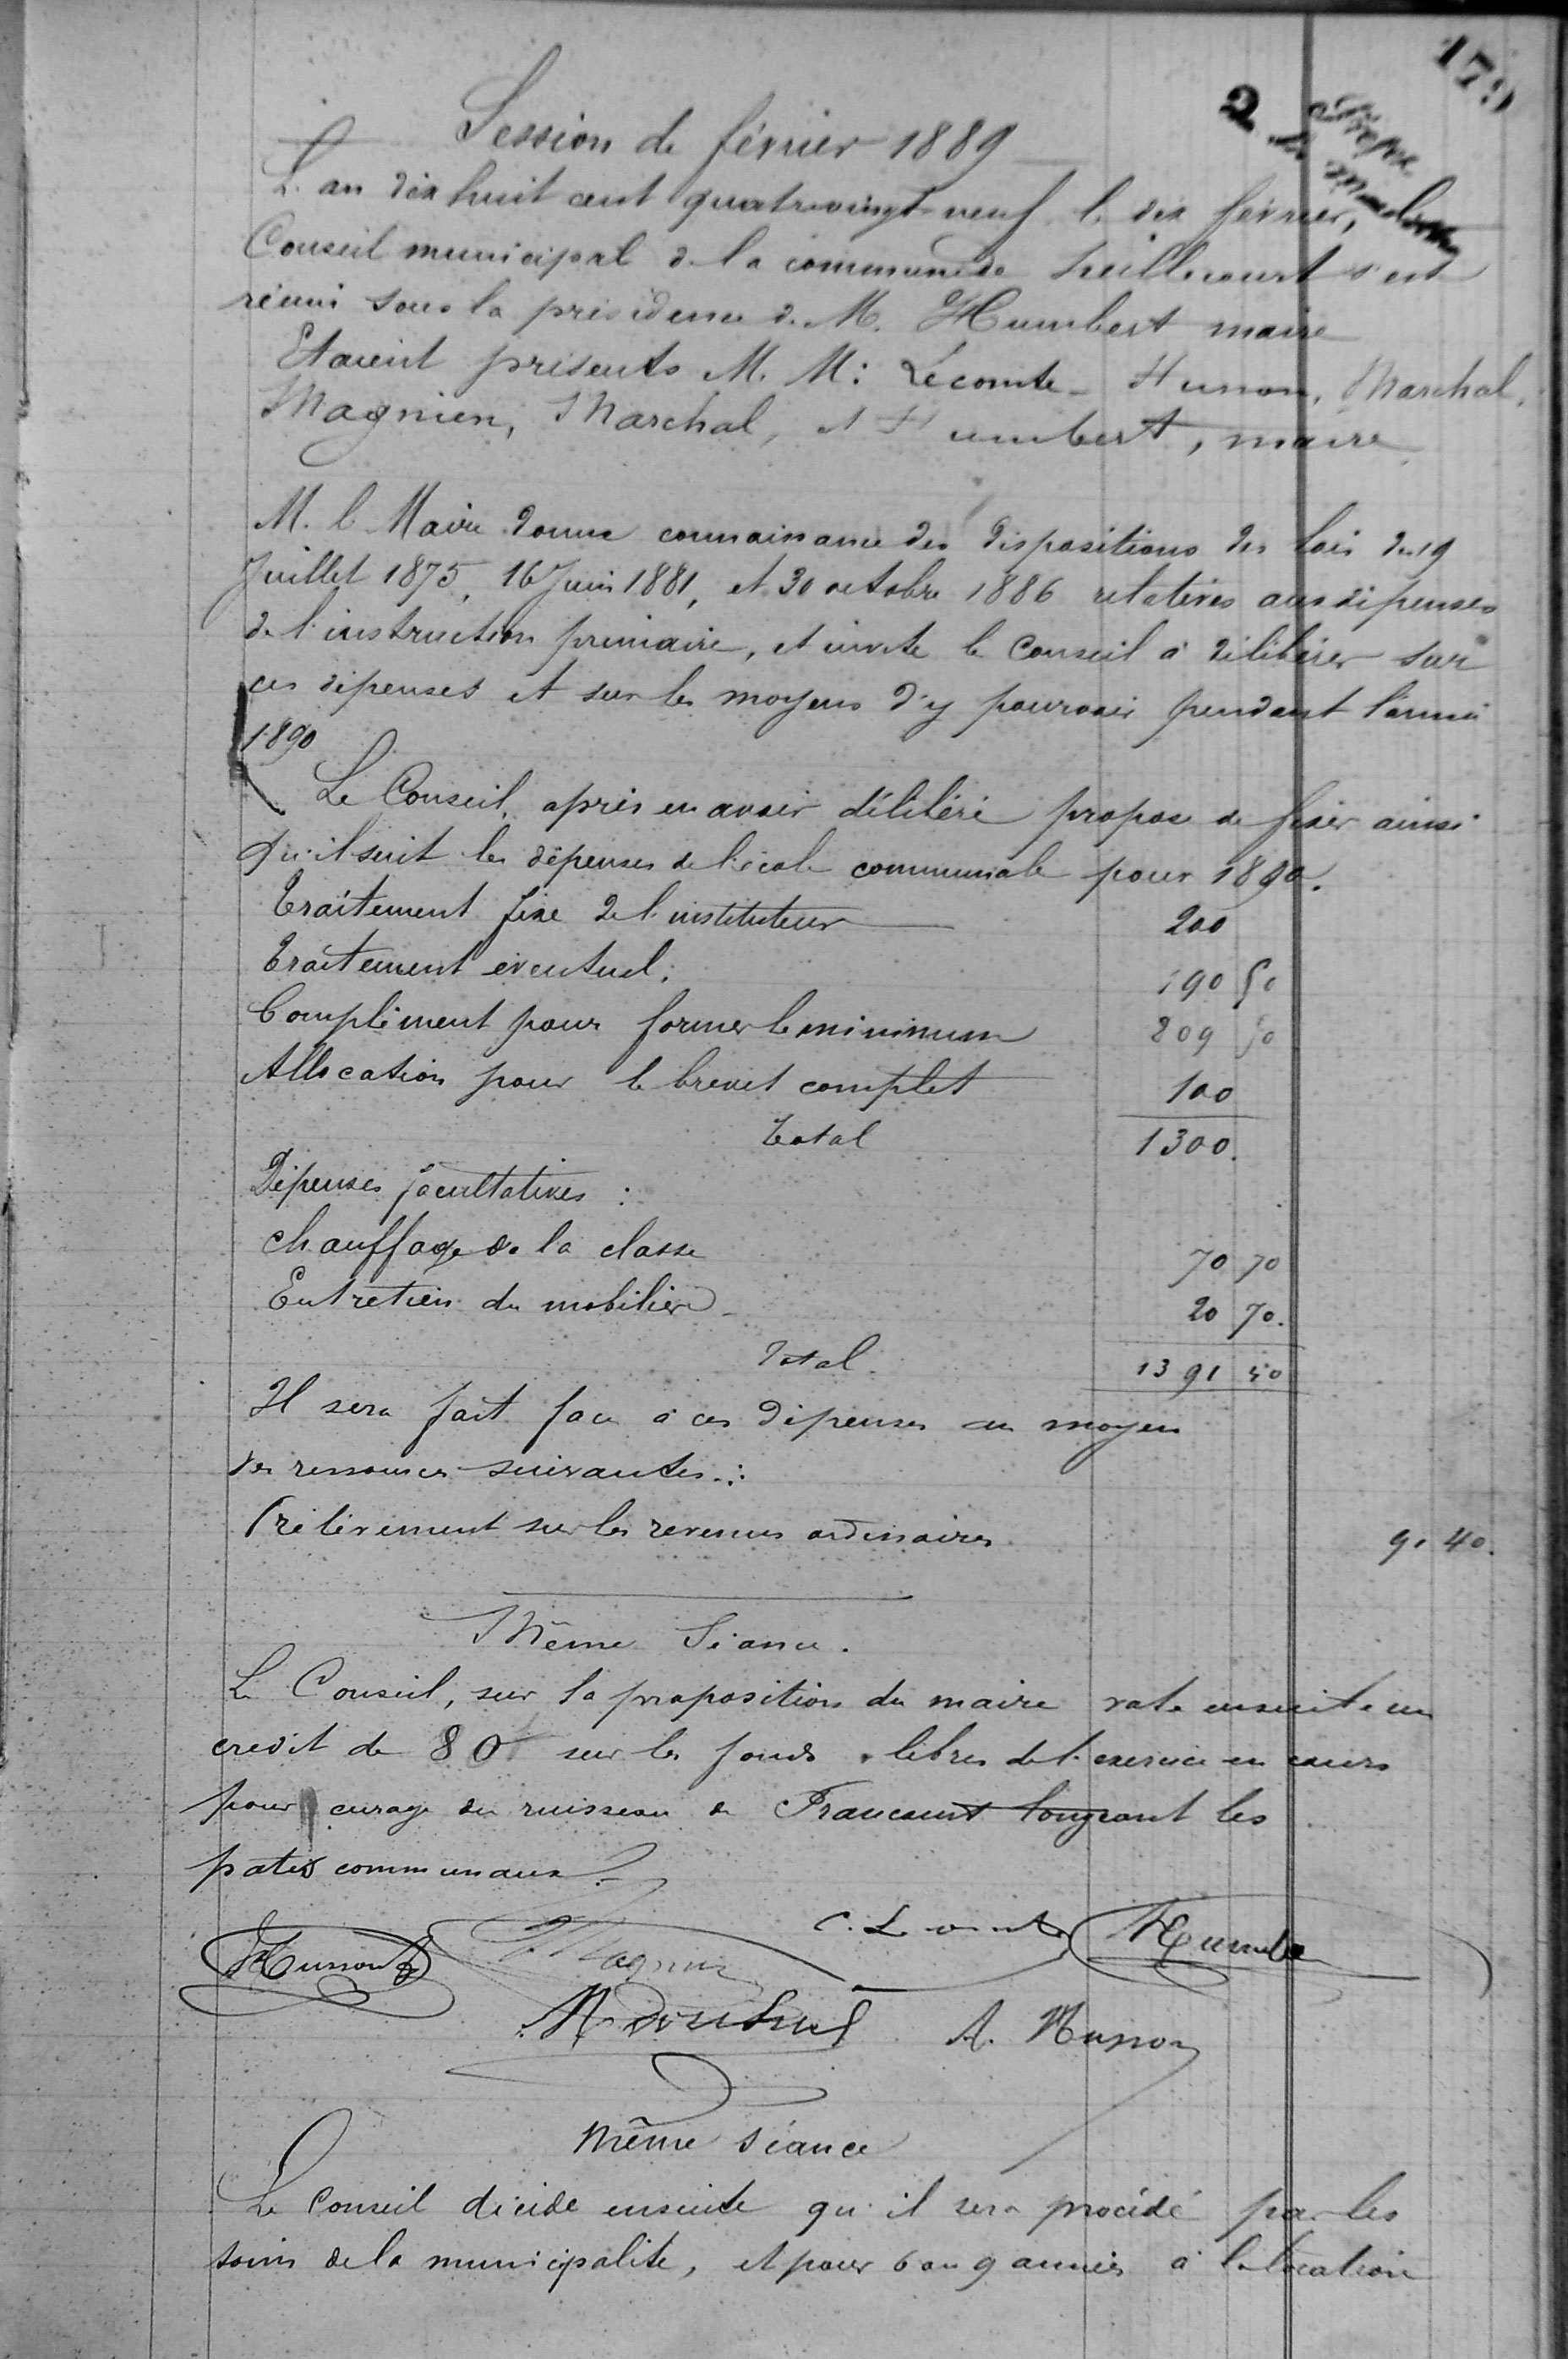 179
2
Session de février 1889
L'an dix huit cent quatre vingt neuf le dix février, le
Conseil municipal de la commune de Heillecourt s'est
réuni sous la présidence de M. Humbert maire
Etaient présents M. M: Lecomte - Husson, Marchal,
Magnien, Marchal, et Humbert, maire
M. le Maire donne connaissance des dispositions des lois des 19
Juillet 1875, 16 Juin 1881, et 30 octobre 1886 relatives aux dépenses
de l'instruction primaire, et invite le Conseil à délibérer sur
ces dépenses et sur les moyens d'y pourvoir pendant l'année
1890
Le Conseil, après en avoir délibéré propose de fixer ainsi
qu'il suit les dépenses de l'école communale pour 1890.
Traitement fixe de l'instituteur 200
Traitement éventuel: 190 50
Complément pour former le minimum 809 50
Allocation pour le brevet complet 100
Total 1300.
Dépenses facultatives :
Chauffage de la classe 70 70
Entretien du mobilier 20 70.
Total 1391 40
Il sera fait face à ces dépenses au moyen
des ressources suivantes :
Prélèvement sur les revenus ordinaires 91 40.
Même Séance.
Le Conseil, sur la proposition du maire vote ensuite un
crédit de 80f sur les fonds libres de l'exercice en cours
pour curage du ruisseau de Francourt longeant les
patis communaux.
Husson
Magnien
C. Lecomte
Humbert
Marchal
A. Husson
Même séance
Le Conseil décide ensuite qu'il sera procédé par les
soins de la municipalité, et pour 6 ou 9 années à la location